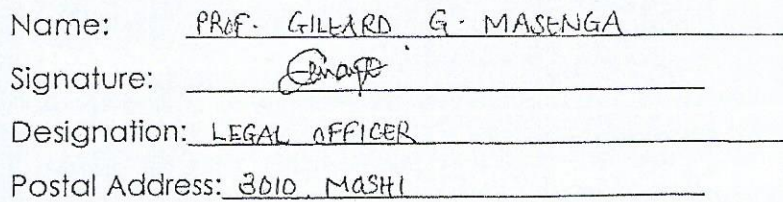 Name: PROF. GILEARD G. MASENGA
Signature:
Designation: LEGAL OFFICER
Postal Address: 3010 MOSHI